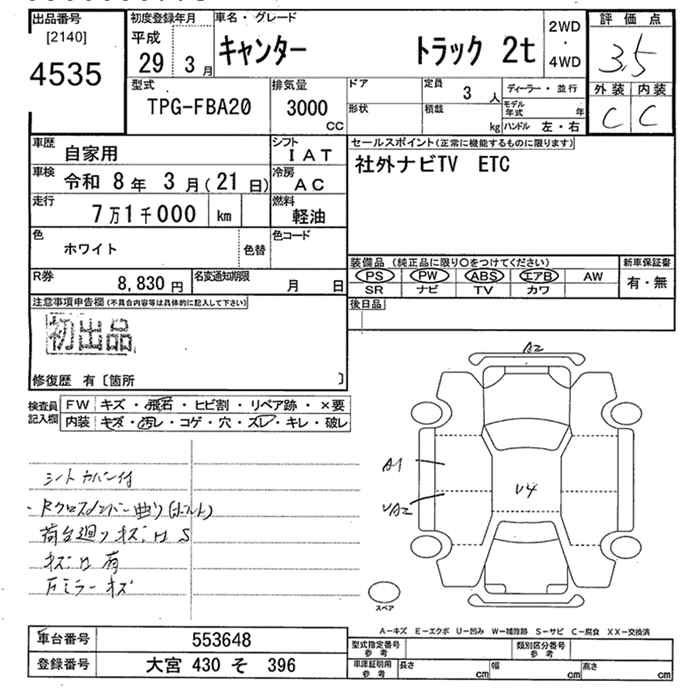 出品番号
[2140]
4535
初度登録年月
平成
29 3月
車名・グレード
キャンター トラック 2t
2WD
・
4WD
評価点
3.5
外装 内装
C C
型式
TPG-FBA20
排気量
3000
CC
ドア
形状
定員
3人
積載
kg
ディーラー・並行
モデル年式 年
ハンドル 左・右
車歴 自家用
シフト IAT
車検 令和 8年 3月(21日)
冷房 AC
走行 7万1千000 km
燃料 軽油
色 ホワイト 色替
色コード
R券 8,830円
名変通知期限 月 日
セールスポイント(正常に機能するものに限ります)
社外ナビTV ETC
装備品 (純正品に限り○をつけてください)
PS PW ABS エアB AW
SR ナビ TV カワ
新車保証書
有・無
後日品
注意事項申告欄(不具合内容等は具体的に記入して下さい)
初出品
修復歴 有〔箇所 〕
検査員記入欄
FW キズ・飛石・ヒビ割・リペア跡・×要
内装 キズ・汚レ・コゲ・穴・スレ・キレ・破レ
シートカバー付
Rクロスメンバー曲り(ボルト)
荷台廻りキズ凹S
キズ凹有
Fミラーキズ
A2
A1
V4
UA2
スペア
A-キズ E-エクボ U-凹み W-補修跡 S-サビ C-腐食 XX-交換済
車台番号 553648
登録番号 大宮 430 そ 396
型式指定番号 参考
類別区分番号 参考
車庫証明用 参考
長さ cm
幅 cm
高さ cm